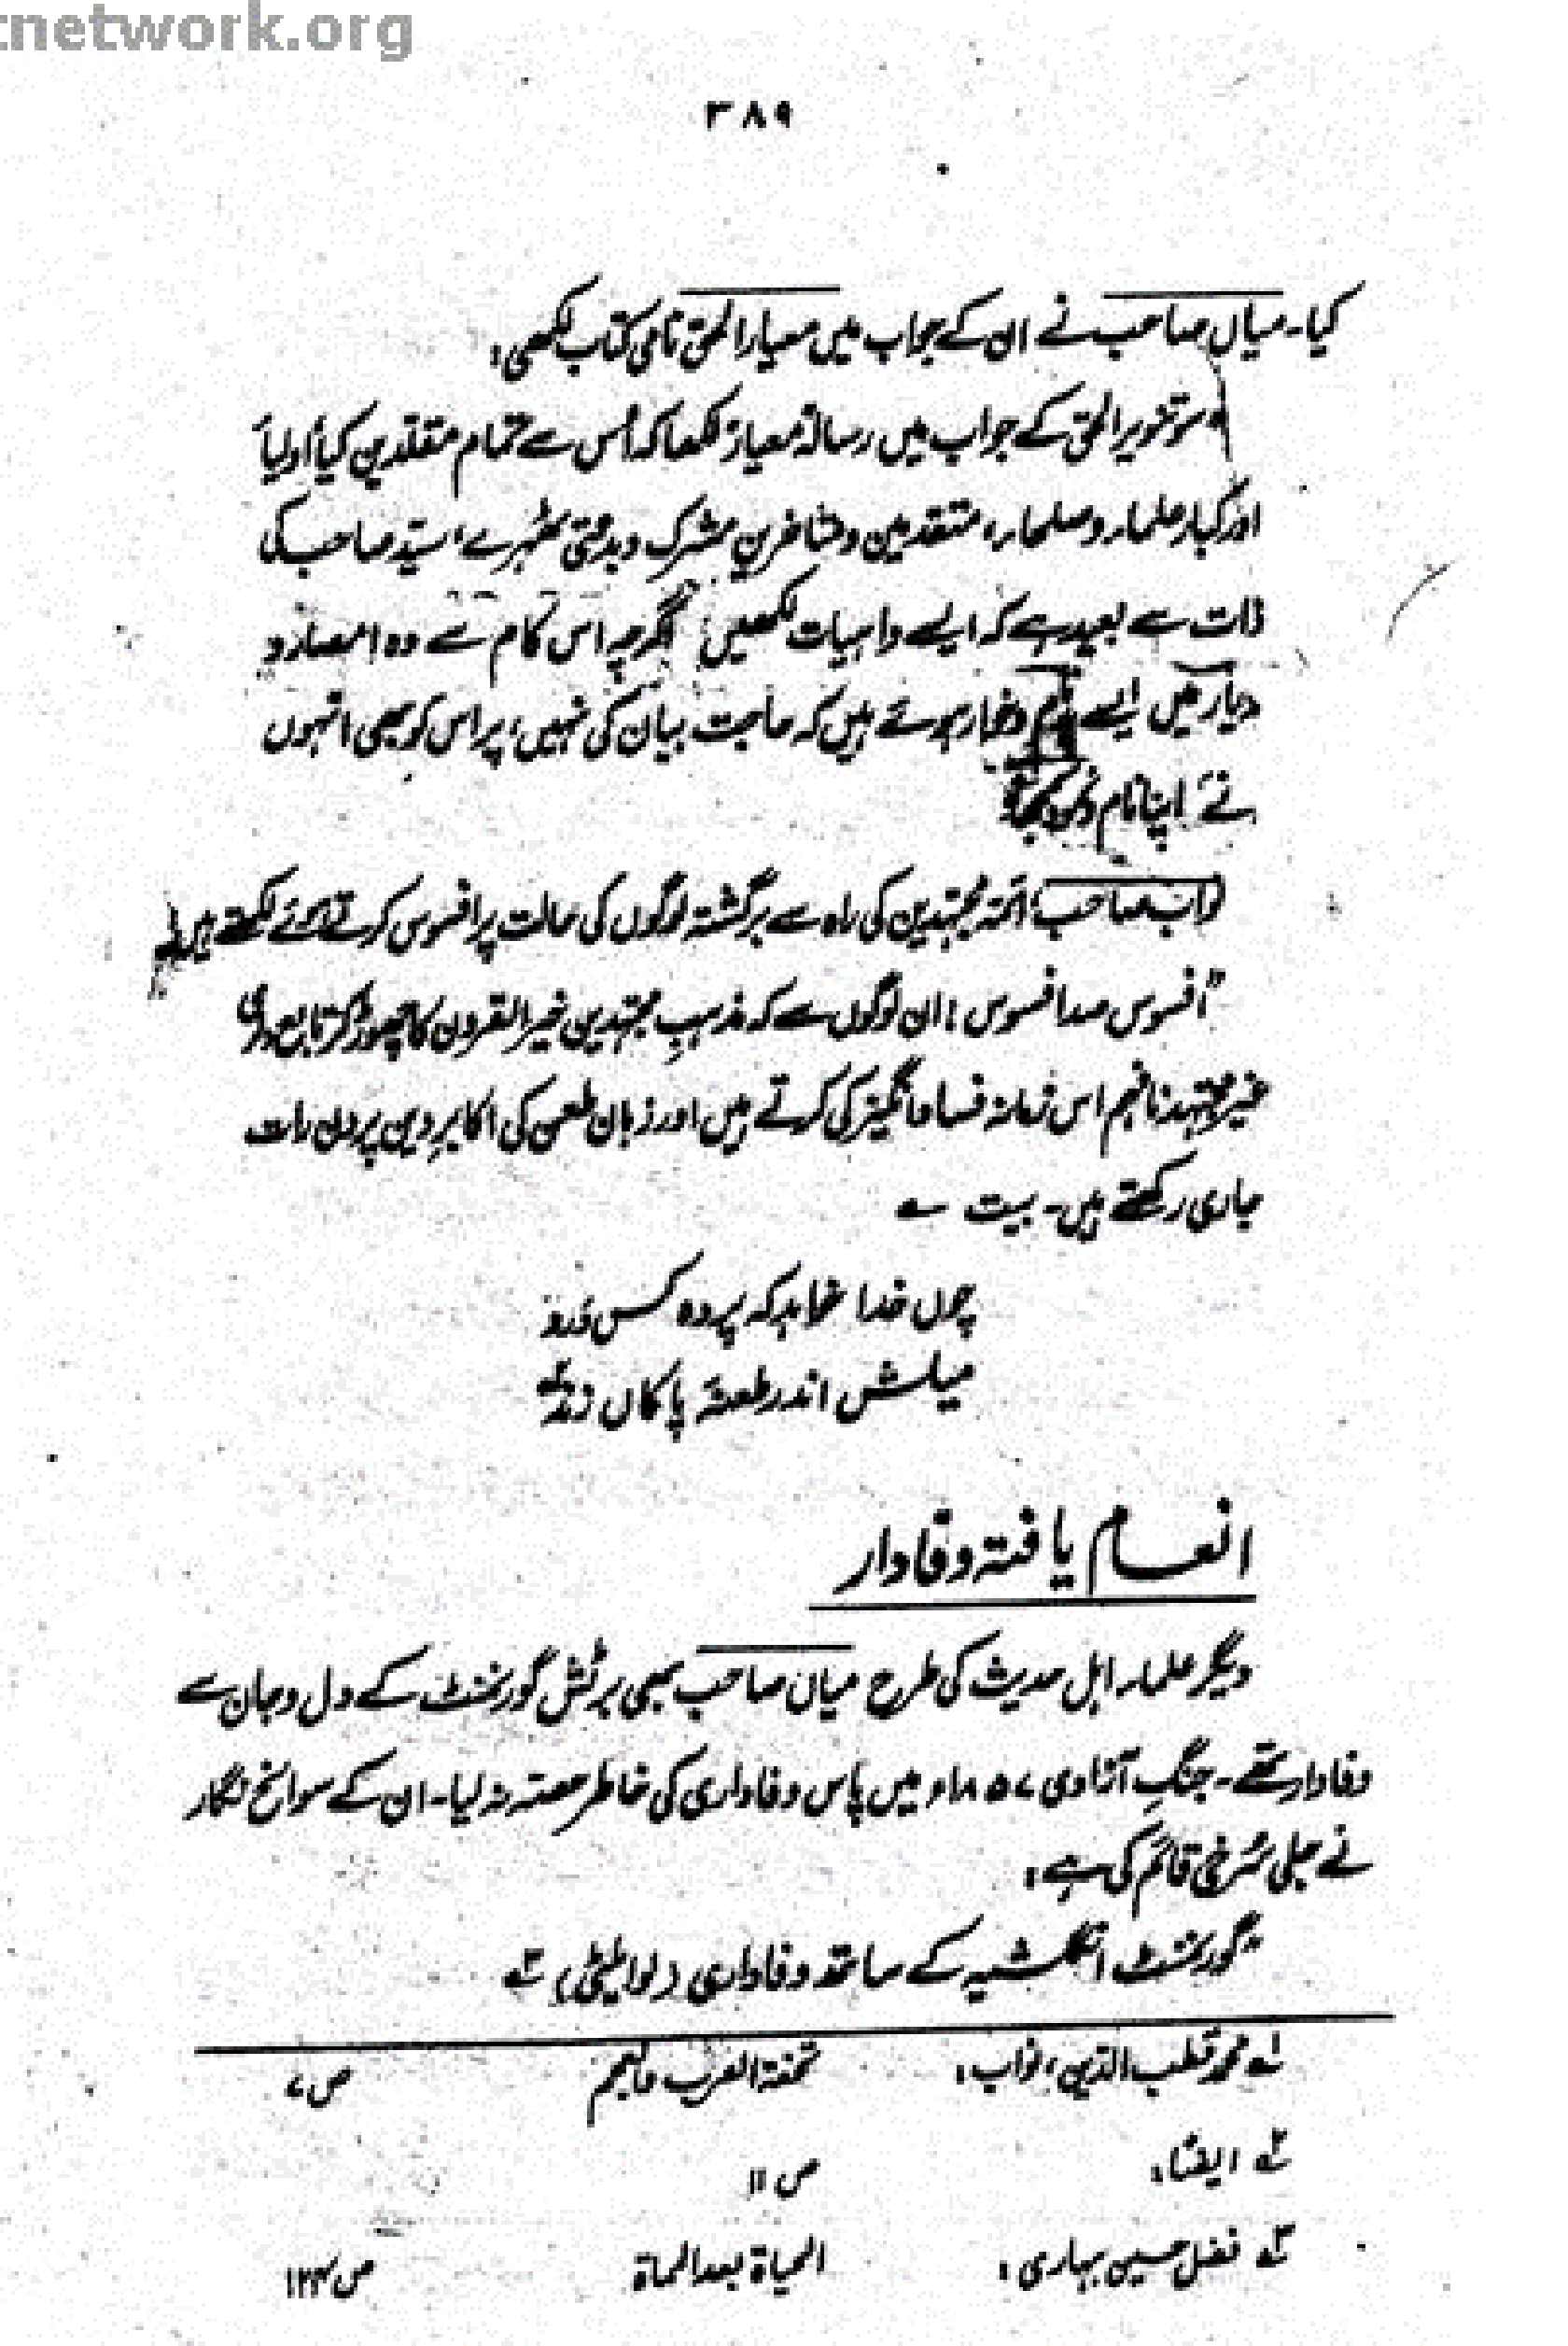 tnetwork.org
۳۸۹
کیا۔ میاں صاحب نے ان کے جواب میں معیار الحق نامی کتاب لکھی:
"سو تنویر الحق کے جواب میں رسالہ معیار لکھا کہ اُس سے تمام مقلدین کیا اولیاً
اور کبار علماء و صلحاء، متقدمین و متاخرین مشرک و بدعتی ٹھہرے، سیّد صاحب کی
ذات سے بعید ہے کہ ایسے واہیات لکھیں، اگرچہ اس کام سے وہ امصار و
دیار میں ایسے و خوار ہوئے ہیں کہ حاجت بیان کی نہیں، پر اس کو بھی انہوں
نے اپنا نام
نواب صاحب، ائمہ مجتہدین کی راہ سے برگشتہ لوگوں کی حالت پر افسوس کرتے ہوئے لکھتے ہیں:
"افسوس صد افسوس! ان لوگوں سے کہ مذہبِ مجتہدین خیر القرون کا چھوڑ کر تابعداری
غیر مجتہد نافہم اس زمانہ فساد انگیز کی کرتے ہیں اور زبان طعن کی اکابرِ دین پر دن رات
جاری رکھتے ہیں۔ بیت ؎
چوں خدا خواہد کہ پردہ کس درد
میلش اندر طعنۂ پاکاں زند ۲؎
انعام یافتہ وفادار
دیگر علماء اہل حدیث کی طرح میاں صاحب بھی برٹش گورنمنٹ کے دل و جان سے
وفادار تھے۔ جنگِ آزادی ۱۸۵۷ء میں پاس وفاداری کی خاطر حصّہ نہ لیا۔ ان کے سوانح نگار
نے جلی سُرخی قائم کی ہے:
"گورنمنٹ انگلشیہ کے ساتھ وفاداری (لوائیلٹی) ۳؎
۱؎ محمد قطب الدین، نواب: تحفۃ العرب والعجم ص ۷
۲؎ ایضاً: ص ۱۱
۳؎ فضل حسین بہاری: الحیاۃ بعد المماۃ ص ۱۲۴